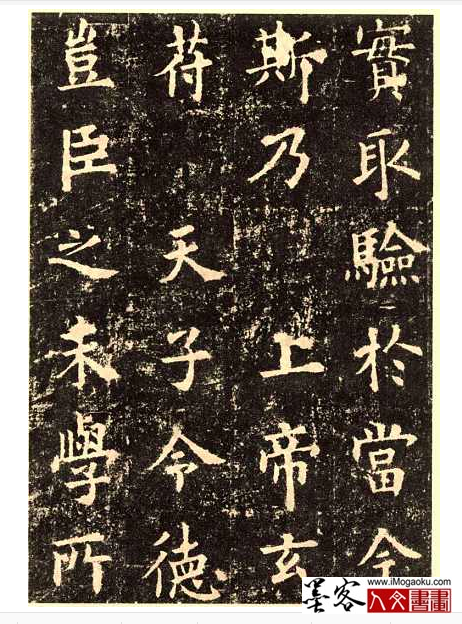 實取驗於當今
斯乃 上帝玄
符 天子令德
豈臣之末學所
www.iMogaoku.com
墨客
人文書畫